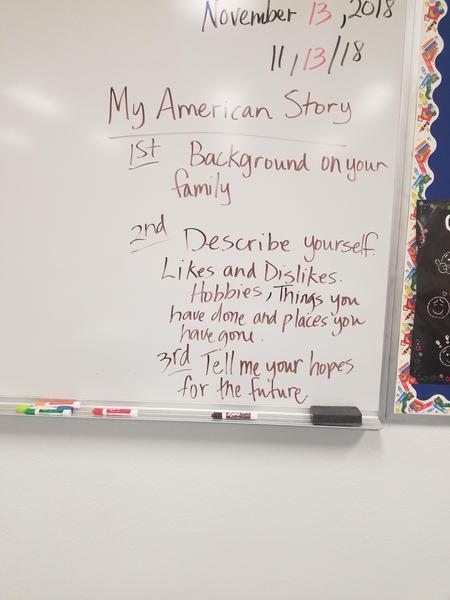 November 13, 2018
11/13/18
My American Story
1st Background on your
family
2nd Describe yourself.
Likes and Dislikes.
Hobbies, Things you
have done and places you
have gone.
3rd Tell me your hopes
for the future.